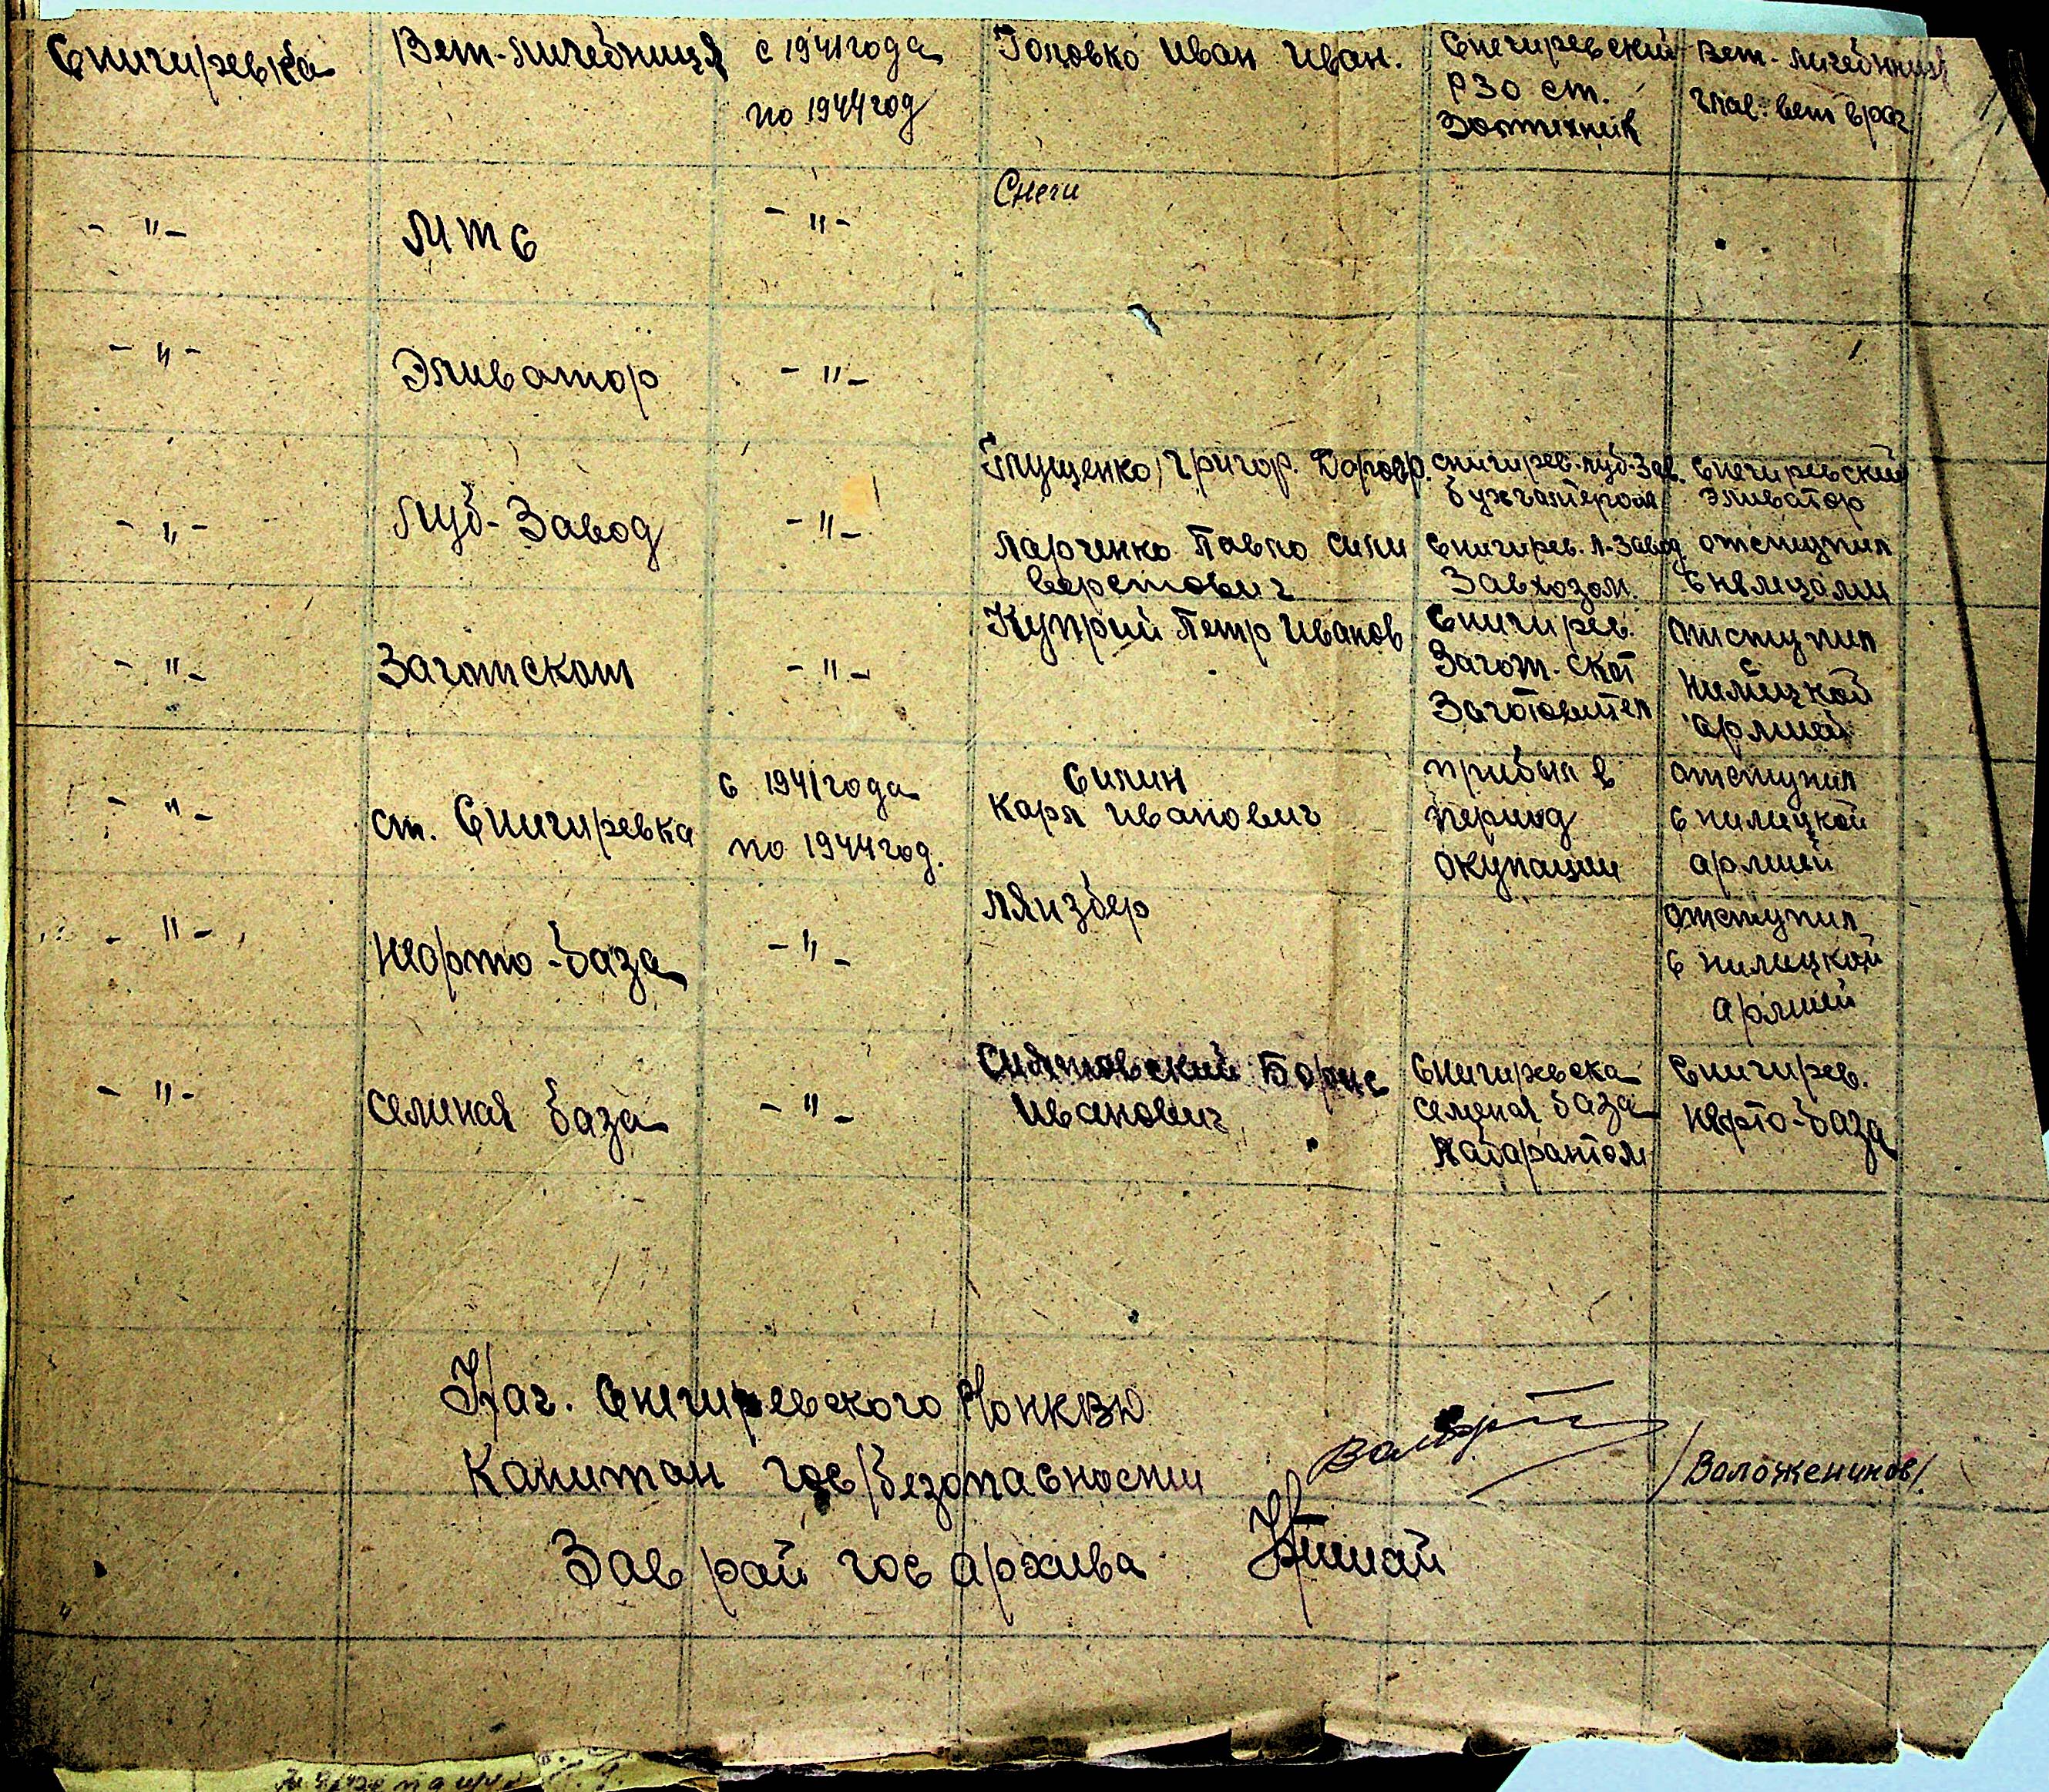 Снигиревка
Вет-личебниця
с 1941 года
по 1944 год
Головко Иван Иван.
Снегиревский
РЗО ст.
Зоотихник
Вет-личебниця
глав. вет врач
- " -
МТС
- " -
Снеги
- " -
Эливатор
- " -
- " -
Луб-Завод
- " -
Глущенко Григор.
снигирев-луб-зав.
бухгалтером
Снегиревский
эливатор
Ларченко Павло Сили
верстович
Снигирев. л-завод
Завхозом.
отступил
с немцами
- " -
Заготскот
- " -
Куприй Петр Иванов
Снигирев.
Загот. скот
Заготовител
отступил
с
нимецкой
армией
- " -
ст. Снигиревка
с 1941 года
по 1944 год.
Силин
Карл Иванович
прибыл в
период
окупации
отступил
с нимецкой
армией
- " -
Нефто-база
- " -
Лянзбер
отступил
с нимецкой
армией
- " -
Семеная база
- " -
Борис
Иванович
Снигиревска
семеная база
лаборантом
Снигирев.
нефто-база
Нач. Снегиревского РОНКВД
Капитан гос/безопасности
/Валоженинов/.
Зав рай гос архива